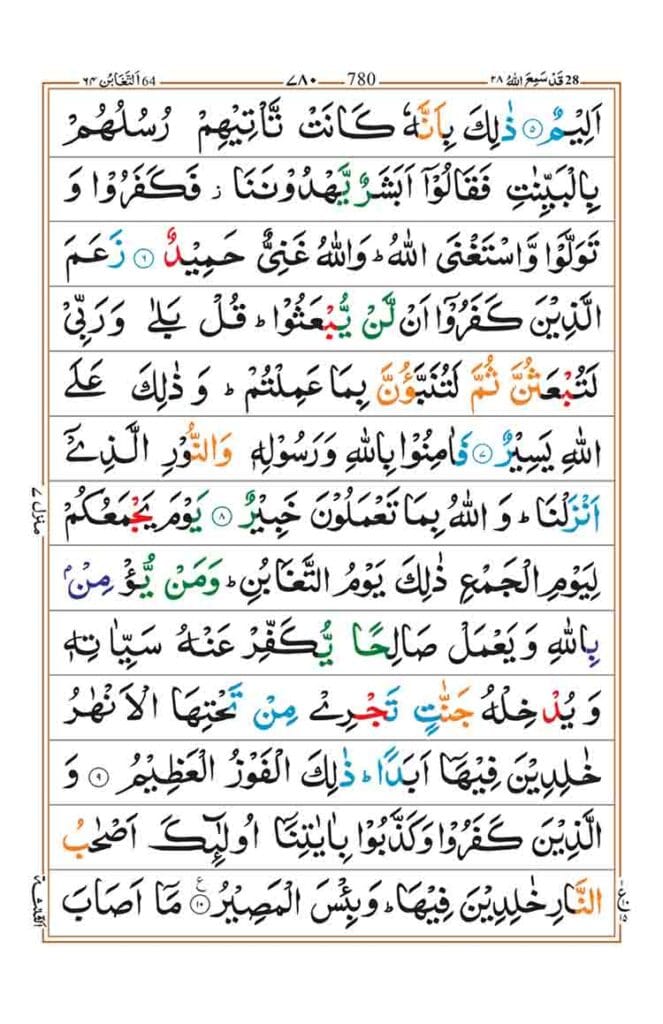 28 قَدْ سَمِعَ اللّٰهُ ٢٨ 780 ٧٨٠ 64 اَلتَّغَابُن ٦٤
اَلِيْمٌ ۝٥ ذٰلِكَ بِاَنَّهٗ كَانَتْ تَّاْتِيْهِمْ رُسُلُهُمْ
بِالْبَيِّنٰتِ فَقَالُوْۤا اَبَشَرٌ يَّهْدُوْنَنَا ز فَكَفَرُوْا وَ
تَوَلَّوْا وَّاسْتَغْنَى اللّٰهُ ؕ وَاللّٰهُ غَنِىٌّ حَمِيْدٌ ۝٦ زَعَمَ
الَّذِيْنَ كَفَرُوْۤا اَنْ لَّنْ يُّبْعَثُوْا ؕ قُلْ بَلٰى وَرَبِّىْ
لَتُبْعَثُنَّ ثُمَّ لَتُنَبَّؤُنَّ بِمَا عَمِلْتُمْ ؕ وَ ذٰلِكَ عَلَى
اللّٰهِ يَسِيْرٌ ۝٧ فَاٰمِنُوْا بِاللّٰهِ وَرَسُوْلِهٖ وَالنُّوْرِ الَّذِىْۤ
اَنْزَلْنَا ؕ وَ اللّٰهُ بِمَا تَعْمَلُوْنَ خَبِيْرٌ ۝٨ يَوْمَ يَجْمَعُكُمْ
لِيَوْمِ الْجَمْعِ ذٰلِكَ يَوْمُ التَّغَابُنِ ؕ وَمَنْ يُّؤْمِنْۢ
بِاللّٰهِ وَيَعْمَلْ صَالِحًا يُّكَفِّرْ عَنْهُ سَيِّاٰتِهٖ
وَيُدْخِلْهُ جَنّٰتٍ تَجْرِىْ مِنْ تَحْتِهَا الْاَنْهٰرُ
خٰلِدِيْنَ فِيْهَاۤ اَبَدًا ؕ ذٰلِكَ الْفَوْزُ الْعَظِيْمُ ۝٩ وَ
الَّذِيْنَ كَفَرُوْا وَكَذَّبُوْا بِاٰيٰتِنَاۤ اُولٰٓئِكَ اَصْحٰبُ
النَّارِ خٰلِدِيْنَ فِيْهَا ؕ وَبِئْسَ الْمَصِيْرُ ۝١٠ ع مَاۤ اَصَابَ
منزل ٧